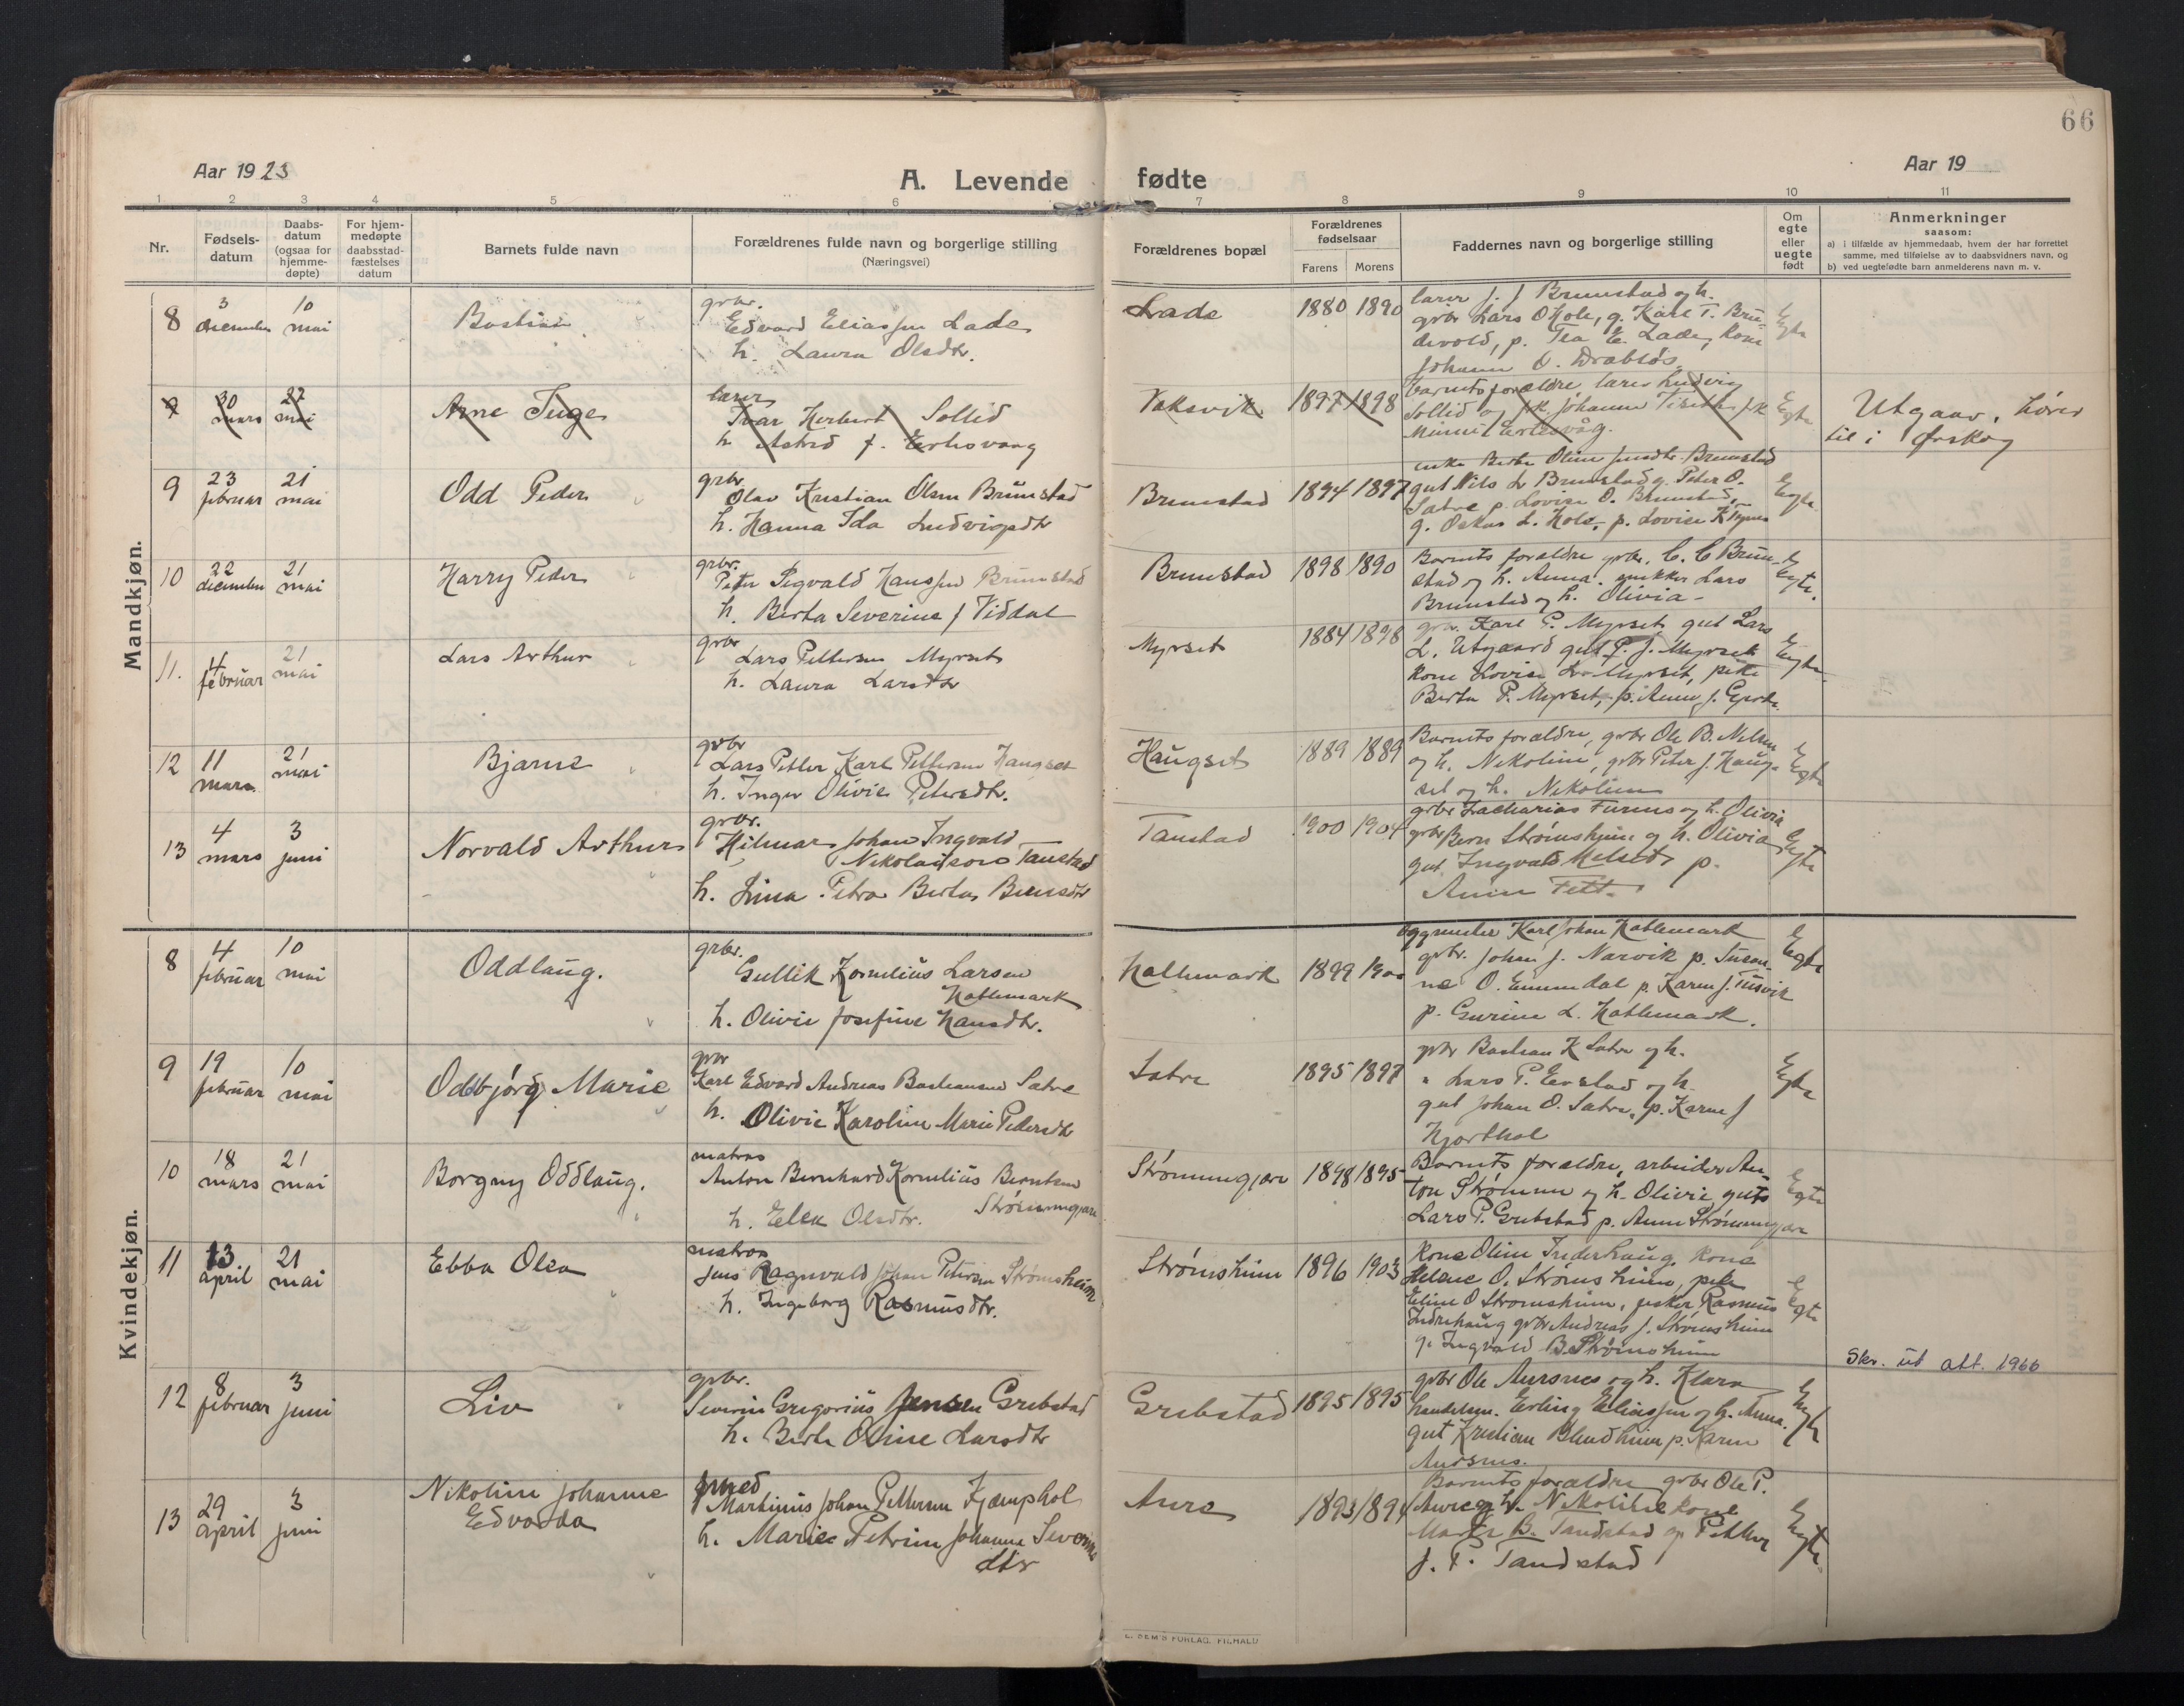 66
Aar 1923
A. Levende fødte
Aar 19
1 2 3 4 5 6 7 8 9 10 11
Nr.
Fødsels-
datum
Daabs-
datum
(ogsaa for
hjemme-
døpte)
For hjem-
medøpte
daabsstad-
fæstelses
datum
Barnets fulde navn
Forældrenes fulde navn og borgerlige stilling
(Næringsvei)
Forældrenes bopæl
Forældrenes
fødselsaar
Farens Morens
Faddernes navn og borgerlige stilling
Om
egte
eller
uegte
født
Anmerkninger
saasom:
a) i tilfælde av hjemmedaab, hvem der har forrettet
samme, med tilføielse av to daabsvidners navn, og
b) ved uegtefødte barn anmelderens navn m. v.
Mandkjøn.
8 3 december 10 mai
Bastian
grbr.
Edvard Eliassen Lade
h. Laura Olsdtr.
Lade 1880 1890
lærer J. J Brunstad og h.
grbr Lars O Hole, g. Karl T. Bru-
devold, p. Tea E. Lade, kone
Johanne O. Drabløs.
Egte
9 30 mars 27 mai
Arne Inge
lærer
Ivar Herbert Sollid
h Astrid f. Ertesvaag
Vaksvik 1897 1898
Barnets forældre lærer Ludvig
Sollid og frk. Johanne frk
Ertesvåg.
Egte
Utgaar, hører
til i Ørskog
9 23 februar 21 mai
Odd Peder
grbr
Olav Kristian Olsen Brunstad
h. Hanna Ida Ludvigsdtr
Brunstad 1894 1897
enke Berte Oline Brunstad
gut Nils L. Brunstad g. Peter O.
Satre p. Lovise O. Brunstad,
g. Oskar L. Hole, p. Lovise K
Egte
10 22 december 21 mai
Harry Peder
grbr.
Peter Sigvald Hanssen Brunstad
h. Berta Severine f Viddal
Brunstad 1898 1890
Barnets forældre grbr. C. C Brun-
stad og h. Anna. snikker Lars
Brunstad og h. Olivia
Egte.
11. 4 februar 21 mai
Lars Arthur
grbr
Lars Pettersen Myrset
h. Laura Larsdtr
Myrset 1884 1898
grbr. Karl P. Myrset, gut Lars
L. Utgaard gut P. J. Myrset
kone Lovise L. Myrset, pike
Berta P. Myrset, p. Anna J.
Egte
12 11 mars 21 mai
Bjarne
grbr
Lars Petter Karl Pettersen Haugset
h. Inger Olivie Petersdtr.
Haugset 1889 1889
Barnets forældre, grbr Ole B. Nilsen
og h. Nikoline, grbr Peter J. Haug-
set og h. Nikoline
Egte
13 4 mars 3 juni
Norvald Arthur
grbr.
Hilmar Johan Ingvald
Nikolaisen Tanstad
h. Lina Petra Berta Berntsdtr
Tanstad 1900 1904
grbr Zacharias Furnes og h. Olivia
grbr Bern Strømsheim og h. Olivia
gut Ingvald Melseth p.
Anna Fett.
Egte
Kvindekjøn.
8 4 februar 10 mai
Oddlaug.
grbr.
Gullik Kornelius Larsen
Hatlemark
h. Olivie Josefine Hansdtr.
Hatlemark 1899 1900
byggmester Karl Johan Hatlemark
grbr. Johan J. Narvik p. Susan-
ne O. Emmendal p. Karen J. Tusvik
p. Gurine L. Hatlemark.
Egte
9 19 februar 10 mai
Oddbjørg Marie
grbr
Karl Edvard Andreas Bastiansen Satre
h. Olivie Karoline Marie Pedersdtr
Satre 1895 1897
grbr Bastian K Satre og h.
" Lars P. Evstad og h.
gut Johan O. Satre, p. Karen J
Hjorthol
Egte
10 18 mars 21 mai
Borgny Oddlaug.
matros
Anton Bernhard Kornelius Berntsen
Strømmegjære
h. Elen Olsdtr.
Strømmegjære 1898 1895
Barnets forældre, arbeider An-
ton Strømme og h. Olivie, gut
Lars P. Grebstad p. Anna Strømmegjære
Egte
11 13. april 21 mai
Ebba Olea
matros
Jens Ragnvald Johan Petersen Strømsheim
h. Ingeborg Rasmusdtr.
Strømsheim 1896 1903
kone Oline Inderhaug, kone
Helene O. Strømsheim, pike
Eline O Strømsheim, fisker Rasmus
Indrehaug grbr Andreas J. Strømsheim
g. Ingvald B. Strømsheim
Egte
Skr. ut att. 1966
12 8 februar 3 juni
Liv
grbr.
Severin Gregorius Jensen Grebstad
h. Berte Oline Larsdtr
Grebstad 1895 1895
grbr Ole Aursnes og h. Klara
handelsm. Erling Eliassen og h. Anna.
gut Kristian Blindheim p. Karen
Aursnes.
Egte
13 29 april 3 juni
Nikoline Johanne
Edvarda
smed
Martinius Johan Pettersen Kjemphol
h. Marie Petrine Johanne Severins
dtr
Aure 1893 1894
Barnets forældre grbr Ole P.
Aure og h. Nikoline kone
Marta B. Tandstad og Petter
J. P. Tandstad
Egte